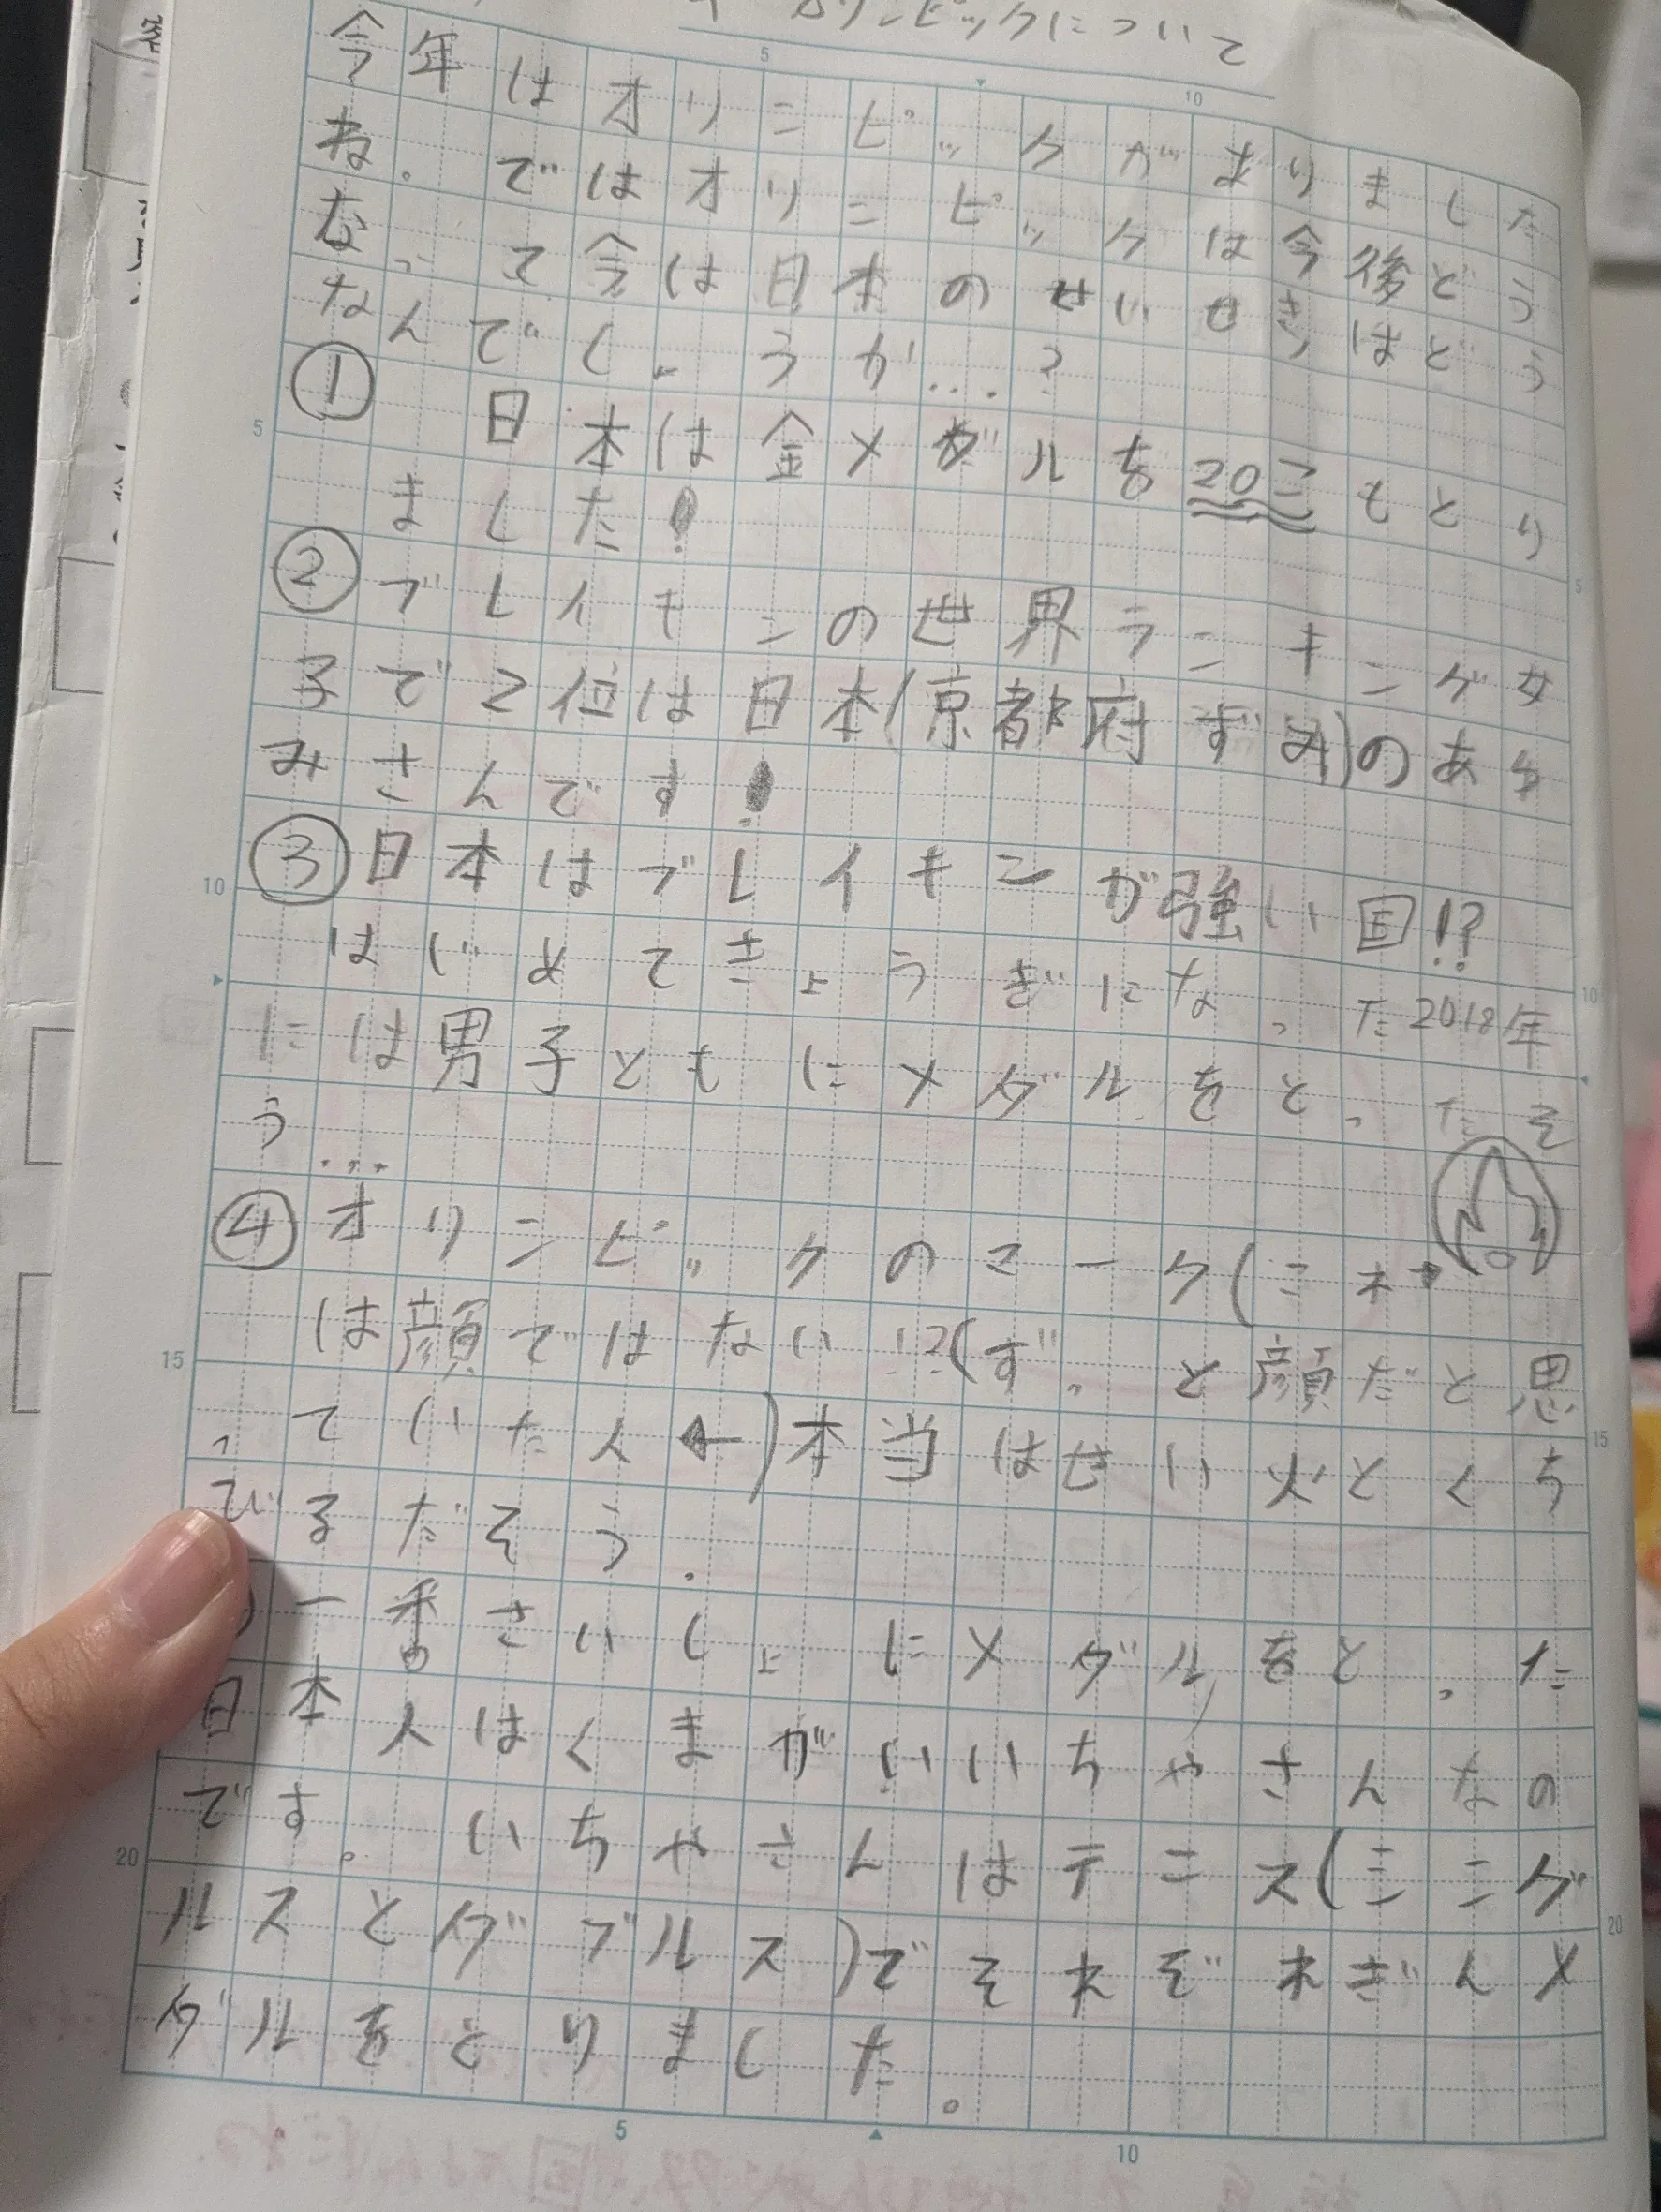 オリンピックについて
今年はオリンピックがありました
ね。ではオリンピックは今後どう
なって今は日本のせいせきはどう
なんでしょうか…?
① 日本は金メダルを20こもとり
ました!
② ブレイキンの世界ランキング女
子で2位は日本(京都府ずみ)のあゆ
みさんです!
③ 日本はブレイキンが強い国!?
はじめてきょうぎになった2018年
には男子ともにメダルをとったそ
う…
④ オリンピックのマーク(これ→
は顔ではないはず。と顔だと思
っていた人←)本当はせい火とくち
びるだそう.
一番さいしょにメダルをとった
日本人はくまがいいちやさんなの
です。いちやさんはテニス(シング
ルスとダブルス)でそれぞれぎんメ
ダルをとりました。